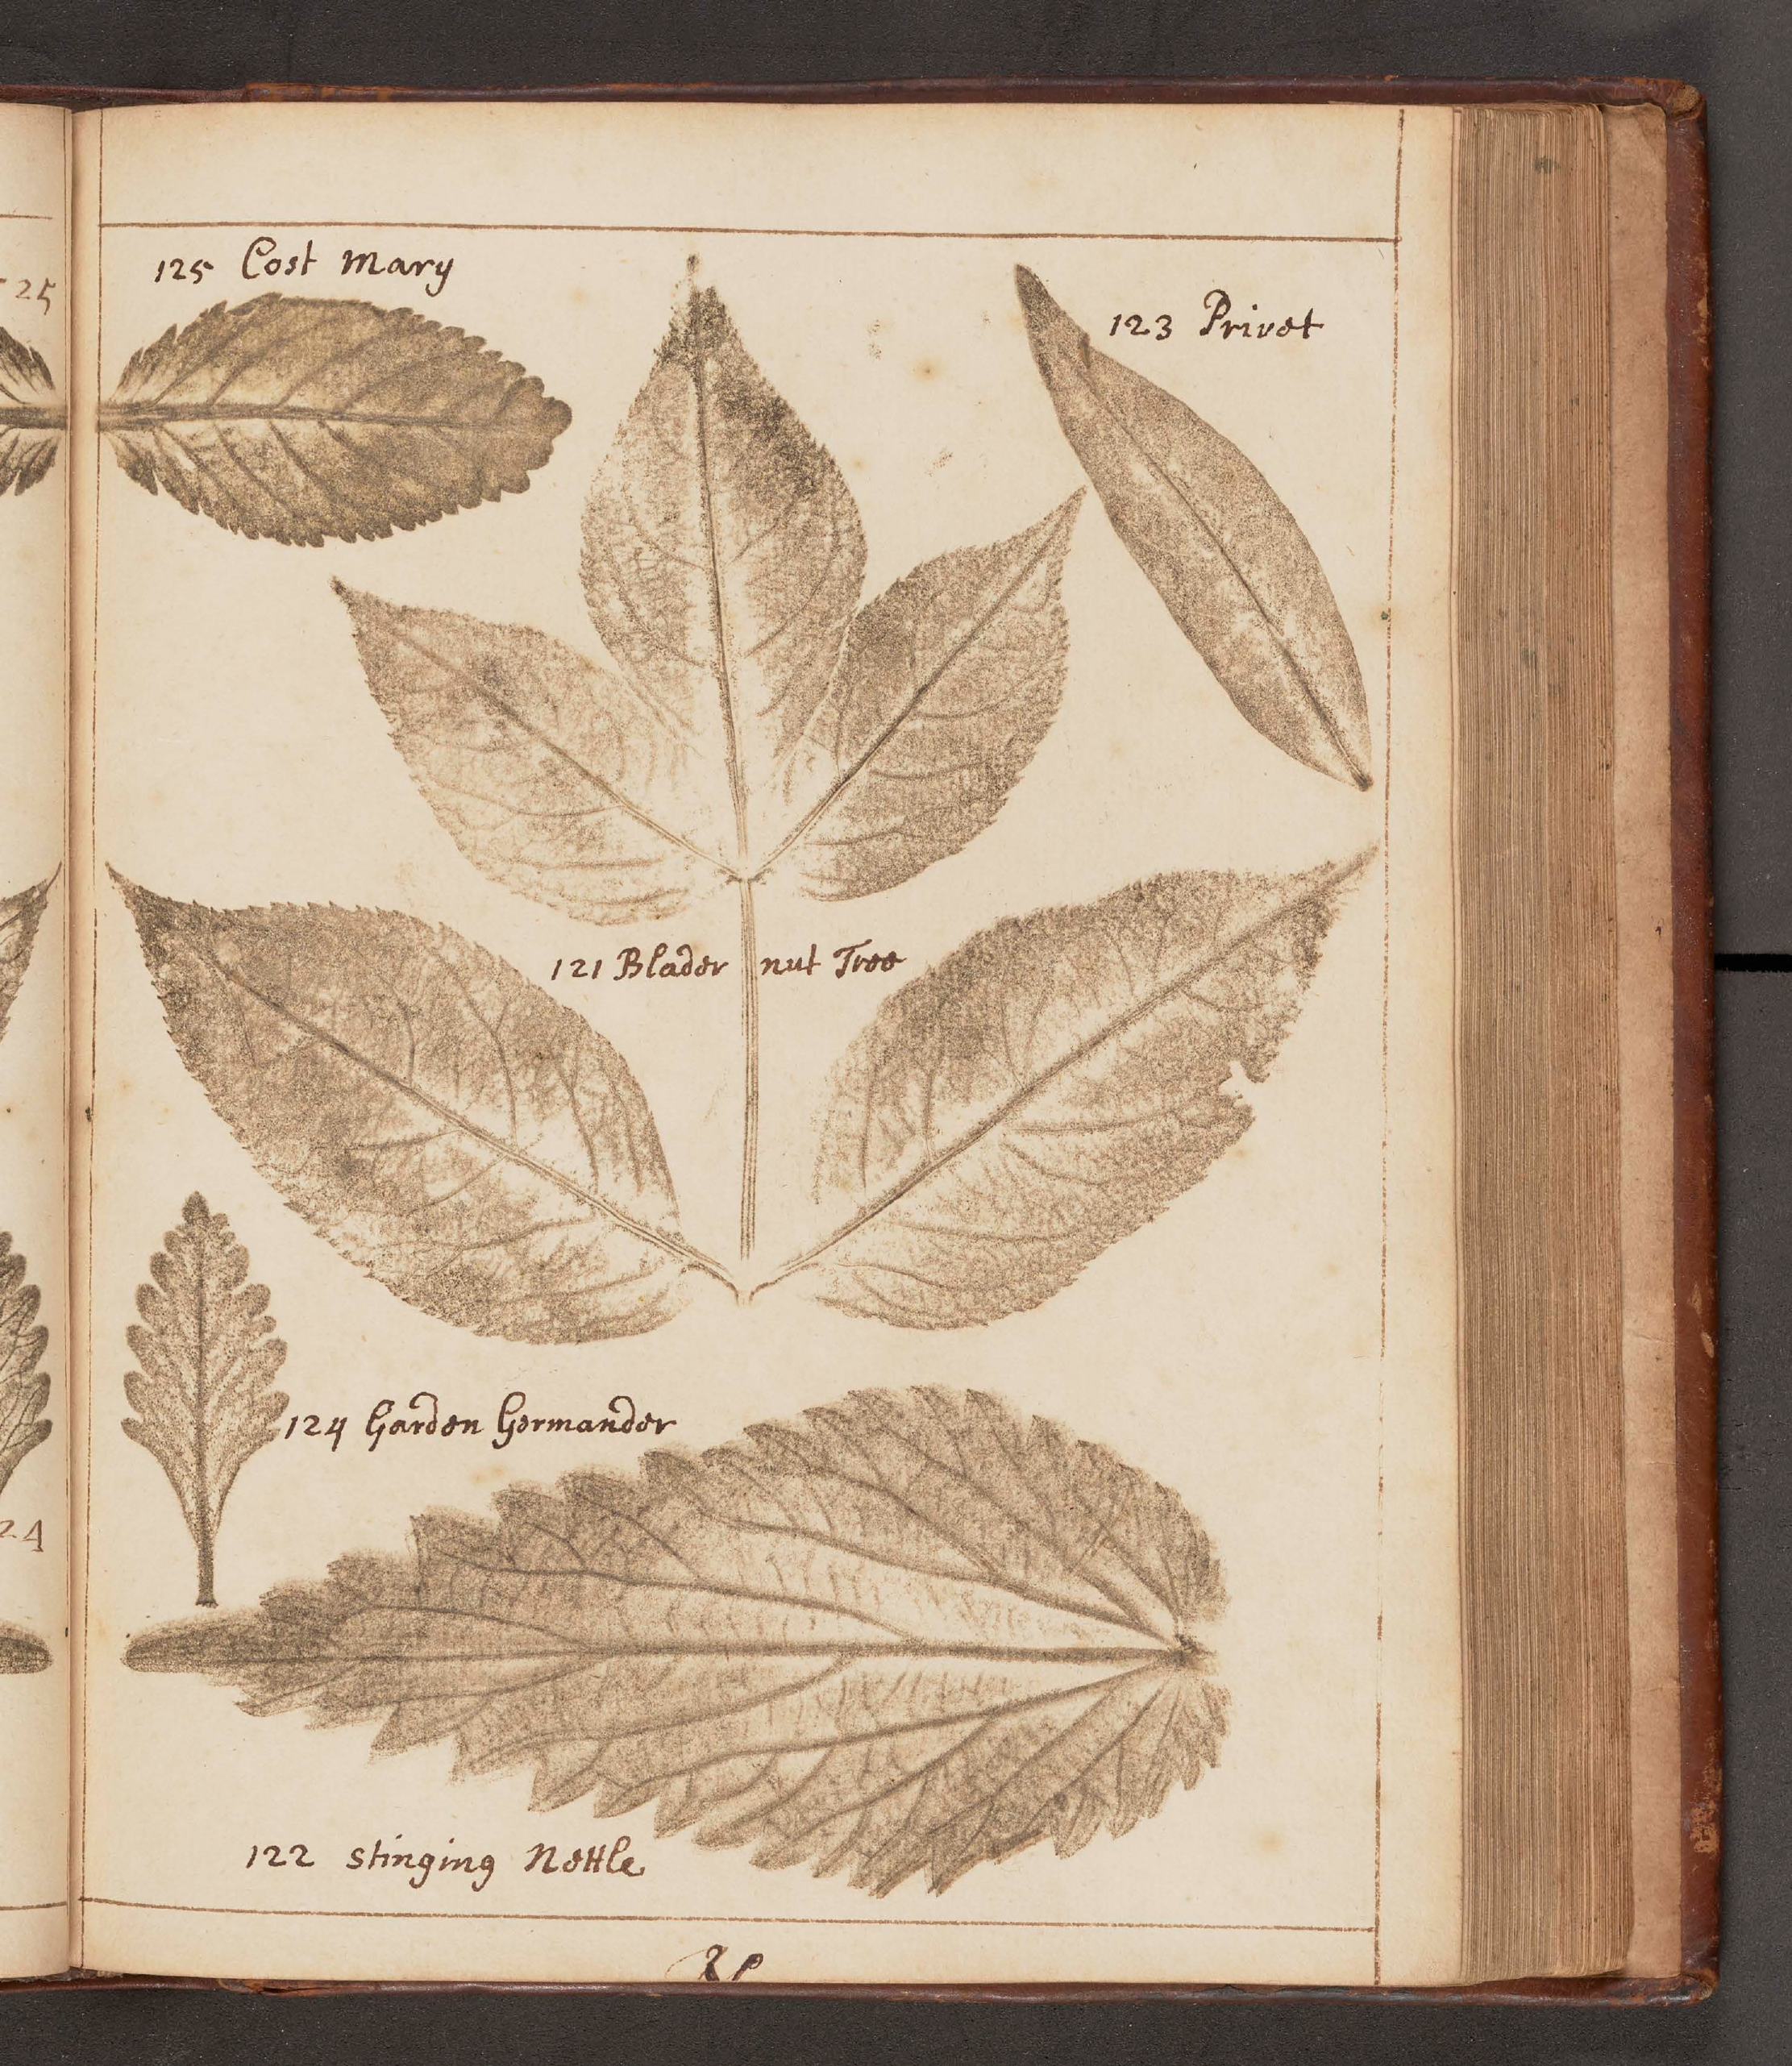 125 Cost Mary
123 Privet
25
121 Blader nut Tree
124 Garden Germander
24
122 stinging Nettle